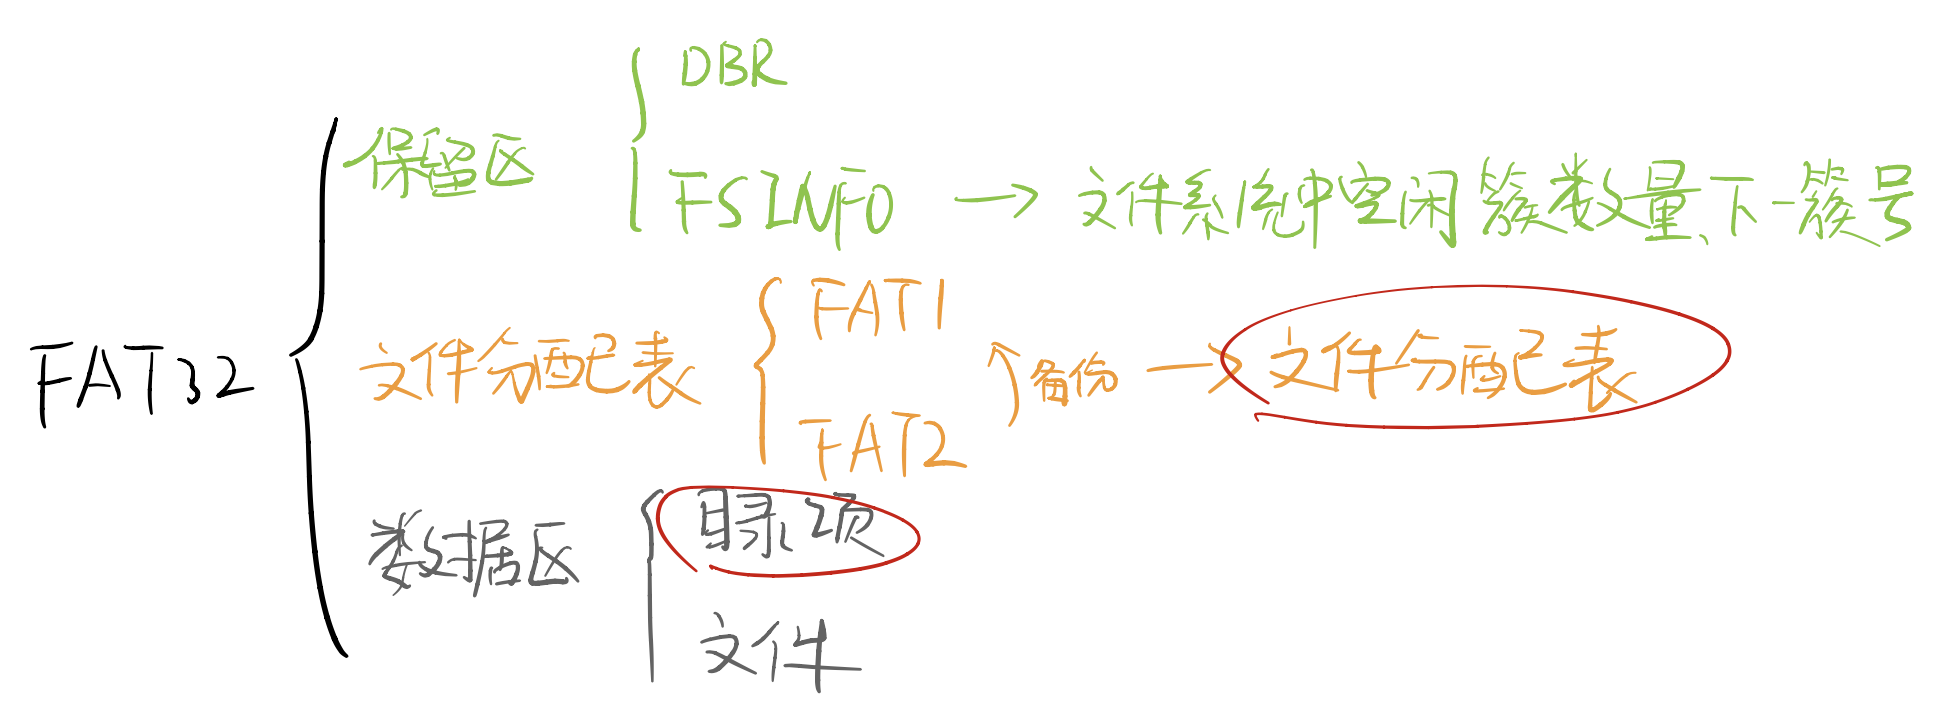 FAT32
保留区
DBR
FSINFO → 文件系统中空闲簇数量、下一簇号
文件分配表
FAT1
备份 → 文件分配表
FAT2
数据区
目录项
文件